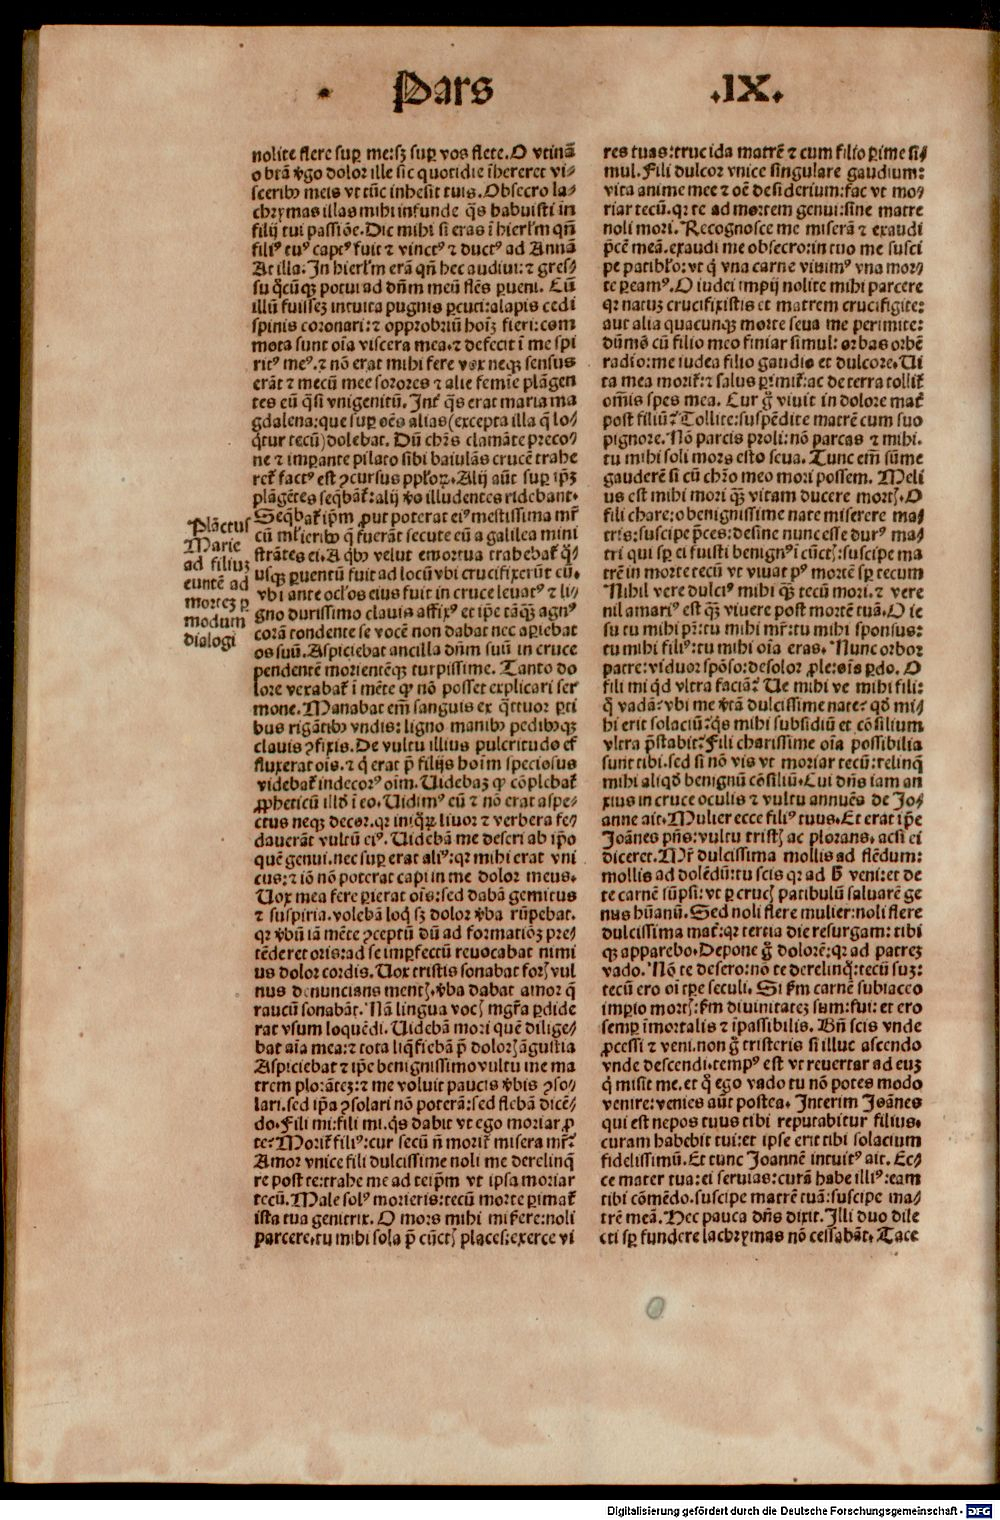 Pars .IX.
nolite flere suꝑ me:sꝫ suꝑ vos flete.O vtinã
o btã v̾go dolor ille sic quotidie ĩhereret vi⸗
sceribꝰ meis vt tũc inhesit tuis.Obsecro la⸗
chrymas illas mihi infunde q̃s habuisti in
filij tui passiõe.Dic mihi si eras ĩ hierľm qñ
filiꝰ tuꝰ captꝰ fuit ⁊ vinctꝰ ⁊ ductꝰ ad Annã
At illa.In hierľm erã qñ hec audiui:⁊ gres⸗
su q̃cũqꝫ potui ad dñm meũ flẽs ꝑueni. Cũ
illũ fuisseꝫ intuita pugnis ꝑcuti:alapis cedi
spinis coronari:⁊ opprobriũ hoiꝫ fieri:com
mota sunt oĩa viscera mea.⁊ defecit ĩ me spi
ritꝰ meꝰ.⁊ nõ erat mihi fere vox neqꝫ sensus
erãt ⁊ mecũ mee sorores ⁊ alie femine plãgen
tes eũ q̃si vnigenitũ. Int̃ q̃s erat maria ma
gdalena:que suꝑ oẽs alias(excepta illa q̃ lo⸗
q̃tur tecũ)dolebat. Dũ chr̃s clamãte preco⸗
ne ⁊ imꝑante pilato sibi baiulãs crucẽ trahe
ret̃ factꝰ est ꝯcursus ppľoꝝ.Alij aũt suꝑ ip̃ꝫ
plãgẽtes seq̃bãt̃:alij v̾o illudentes ridebant.
Seq̃bat̃ ip̃m ꝓut poterat eiꝰ mestissima mr̃
cũ mľieribꝰ q̃ fuerãt secute eũ a galilea mini
strãtes ei.A q̃bꝰ velut emortua trahebat̃ q̃⸗
usqꝫ ꝑuentũ fuit ad locũ vbi crucifixerũt eũ.
vbi ante ocľos eius fuit in cruce leuatꝰ ⁊ li⸗
gno durissimo clauis affixꝰ et ip̃e tãq̃ꝫ agnꝰ
corã tondente se vocẽ non dabat nec aꝑiebat
os suũ.Aspiciebat ancilla dñm suũ in cruce
pendentẽ morientẽqꝫ turpissime. Tanto do
lore vexabat̃ ĩ mẽte ꝙ nõ posset explicari ser
mone.Manabat em̃ sanguis ex q̃ttuor ꝑti
bus rigãtibꝰ vndis:ligno manibꝰ pedibꝰqꝫ
clauis ꝯfixis.De vultu illius pulcritudo eff
fluxerat oĩs.⁊ q̃ erat p̃ filijs hoĩm speciosus
videbat̃ indecorꝰ oĩm.Uidebaꝫ ꝙ cõplebat̃
ꝓpheticũ illd̾ ĩ eo.Uidimꝰ eũ ⁊ nõ erat aspe⸗
ctus neqꝫ decor.qꝛ iniq̃ꝝ liuor ⁊ verbera fe⸗
dauerãt vultũ eiꝰ. Uidebã me deseri ab ip̃o
quẽ genui.nec suꝑerat aliꝰ:qꝛ mihi erat vni
cus:⁊ iõ nõ poterat capi in me dolor meus.
Uox mea fere ꝑierat oĩs:sed dabã gemitus
⁊ suspiria.volebã loq̃ sꝫ dolor v̾ba rũpebat.
qꝛ v̾bũ iã mẽte ꝯceptũ dũ ad formatiõꝫ pre⸗
tẽderet oris:ad se imꝑfectũ reuocabat nimi
us dolor cordis. Uox tristis sonabat foris vul
nus denuncians mentis.v̾ba dabat amor q̃
raucũ sonabãt. Nã lingua vocis mgr̃a ꝑdide
rat vsum loquẽdi. Uidebã mori quẽ dilige⸗
bat aĩa mea:⁊ tota liq̃fiebã p̃ doloris ãgustia
Aspiciebat ⁊ ip̃e benignissimo vultu me ma
trem plorãteꝫ:⁊ me voluit paucis v̾bis ꝯso⸗
lari.sed ip̃a ꝯsolari nõ poterã:sed flebã dicẽ⸗
do.Fili mi:fili mi.q̃s dabit vt ego moriar ꝓ
te?Morit̃ filiꝰ:cur secũ ñ morit̃ misera mr̃?
Amor vnice fili dulcissime noli me derelinq̃
re post te:trahe me ad teip̃m vt ipsa moriar
tecũ.Male solꝰ morieris:tecũ morte ꝑimat̃
ista tua genitrix. O mors mihi misere:noli
parcere.tu mihi sola p̃ cũctis places:exerce vi
Plãctus
Marie
ad filiuꝫ
euntẽ ad
morteꝫ ꝑ
modum
dialogi
res tuas:trucida matrẽ ⁊ cum filio ꝑime si⸗
mul.Fili dulcor vnice singulare gaudium:
vita anime mee ⁊ oẽ desiderium:fac vt mo⸗
riar tecũ.qꝛ te ad mortem genui:sine matre
noli mori.Recognosce me miserã ⁊ exaudi
p̃cẽ meã.exaudi me obsecro:in tuo me susci
pe patibľo:vt q̃ vna carne viuimꝰ vna mor⸗
te ꝑeamꝰ.O iudei impij nolite mihi parcere
qꝛ natuꝫ crucifixistis et matrem crucifigite:
aut alia quacunqꝫ morte seua me perimite:
dũmõ cũ filio meo finiar simul:orbas orbẽ
radio:me iudea filio gaudio et dulcore.Ui
ta mea morit̃:⁊ salus ꝑimit̃:ac de terra tollit̃
omĩs spes mea. Cur g̃ viuit in dolore mat̃
post filiũ?Tollite:suspẽdite matrẽ cum suo
pignore.Nõ parcis proli:nõ parcas ⁊ mihi.
tu mihi soli mors esto seua.Tunc em̃ sũme
gauderẽ si cũ chr̃o meo mori possem. Meli
us est mihi mori q̃ꝫ vitam ducere mortis.O
fili chare:o benignissime nate miserere ma⸗
tris:suscipe p̃ces:desine nunc esse durꝰ ma⸗
tri qui sꝑ ei fuisti benignꝰ ĩ cũctis:suscipe ma
trẽ in morte tecũ vt viuat pꝰ mortẽ sꝑ tecum
Nihil vere dulciꝰ mihi q̃ꝫ tecũ mori.⁊ vere
nil amariꝰ est q̃ꝫ viuere post mortẽ tuã.O ie
su tu mihi pr̃:tu mihi mr̃:tu mihi sponsus:
tu mihi filiꝰ:tu mihi oĩa eras. Nunc orbor
patre:viduor spõso:desolor ꝓle:oĩa ꝑdo. O
fili mi qd̾ vltra faciã? Ue mihi ve mihi fili:
q̃ vadã?vbi me v̾tã dulcissime nate?qd̾ mi⸗
hi erit solaciũ?q̃s mihi subsidiũ et cõsilium
vltra p̃stabit?Fili charissime oĩa possibilia
sunt tibi.sed si nõ vis vt moriar tecũ:relinq̃
mihi aliqd̾ benignũ cõsiliũ.Cui dñs iam an
xius in cruce oculis ⁊ vultu annuẽs de Jo⸗
anne ait.Mulier ecce filiꝰ tuus.Et erat ip̃e
Joãnes p̃ñs:vultu tristis ac plorans.acsi ei
diceret.Mr̃ dulcissima mollis ad flẽdum:
mollis ad dolẽdũ:tu scis qꝛ ad h̾ veni:et de
te carnẽ sũpsi:vt ꝑ crucis patibulũ saluarẽ ge
nus hũanũ. Sed noli flere mulier:noli flere
dulcissima mat̃:qꝛ tertia die resurgam:tibi
qꝫ apparebo.Depone g̃ dolorẽ:qꝛ ad patreꝫ
vado.Nõ te desero:nõ te derelinq̃:tecũ suꝫ:
tecũ ero oĩ tꝑe seculi. Si scd̾m carnẽ subiaceo
imꝑio mortis:scd̾m diuinitateꝫ sum:fui:et ero
semꝑ ĩmortalis ⁊ ĩpassibilis. Bñ scis vnde
ꝓcessi ⁊ veni.non g̃ tristeris si illuc ascendo
vnde descendi.tempꝰ est vt reuertar ad euꝫ
q̃ misit me.et q̃ ego vado tu nõ potes modo
venire:venies aũt postea. Interim Joãnes
qui est nepos tuus tibi reputabitur filius.
curam habebit tui:et ipse erit tibi solacium
fidelissimũ.Et tunc Joannẽ intuitꝰ ait. Ec⸗
ce mater tua:ei seruias:curã habe illiꝰ:eam
tibi cõmẽdo.suscipe matrẽ tuã:suscipe ma⸗
trẽ meã.Hec pauca dñs dixit.Illi duo dile
cti sꝑ fundere lachrymas nõ cessabãt. Tace
Digitalisierung gefördert durch die Deutsche Forschungsgemeinschaft - DFG